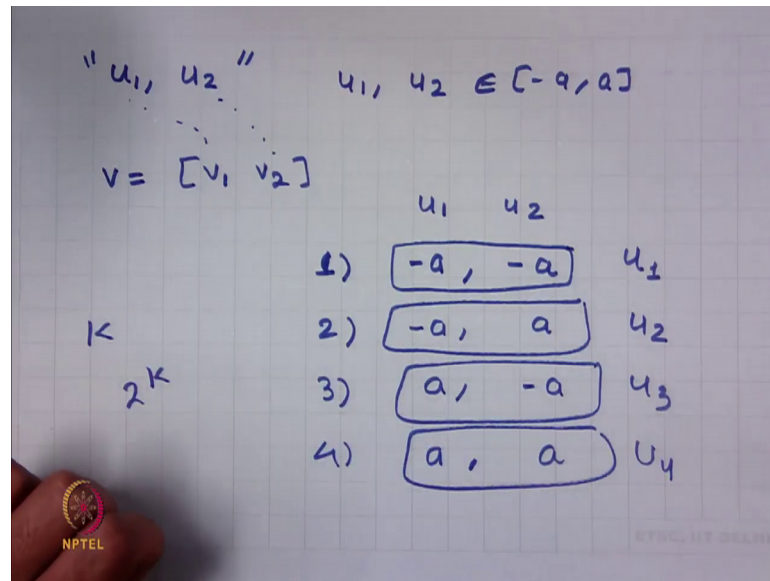 "u₁, u₂" u₁, u₂ ∈ [-a, a]
v = [v₁ v₂]
u₁ u₂
1) -a, -a u₁
2) -a, a u₂
K
2^K
3) a, -a u₃
4) a, a U₄
NPTEL
ETSC, IIT DELHI